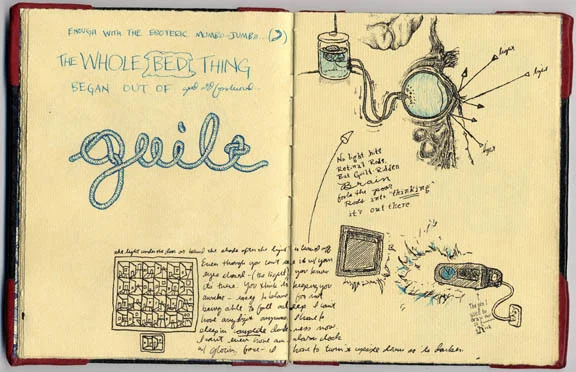 ENOUGH WITH THE ESOTERIC MUMBO-JUMBO...
THE WHOLE BED THING
BEGAN OUT OF
guilt
light
light
light
No light hits
Retinal Rods,
But Guilt-Ridden
Brain
fools the poor
Rods into "thinking"
it's out there.
the light under the door or behind the shade after the light is turned off
Even though you can't see it w/ your
eyes closed - (the light) you know
it's there. You think it's keeping you
awake - easy to blame for not
being able to fall asleep. I can't
have any light anymore. I have to
sleep in complete darkness now.
I can't even have an alarm clock
w/ glowing face - I have to turn it upside down so it's darker